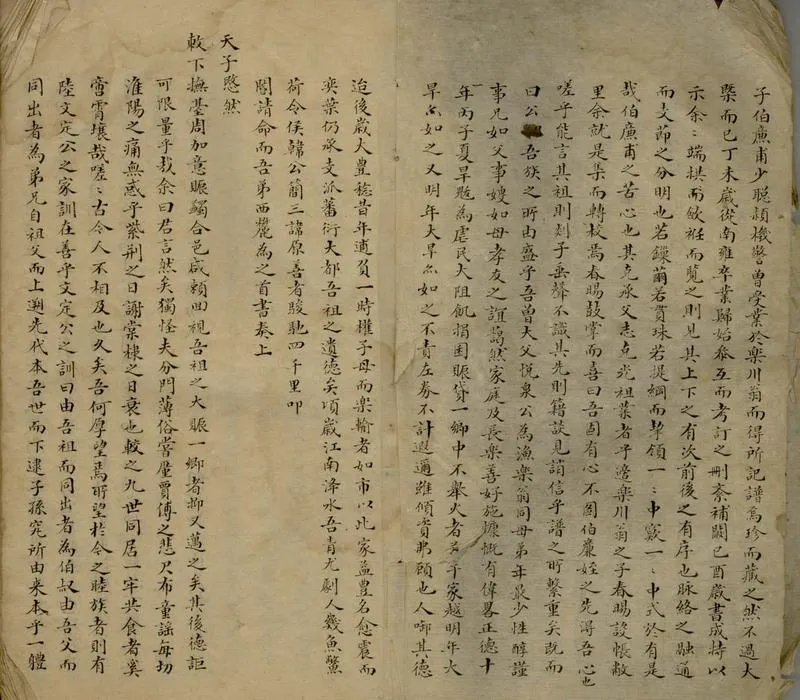 子伯廉甫少聪頴機警曾受業於楽川翁而得所記譜焉珍而藏之然不過大
槩而已丁未歲從南雍卒業歸始叅互而考訂之刪紊補闕已酉歲書成持以
示余〻端拱而斂衽而覽之則見其上下之有次前後之有序也脉絡之融通
而支莭之分明也若鏁繭若貫珠若提綱而挈領一〻中竅一〻中式於有是
哉伯廉甫之苦心也其克承父志克光祖業者乎適楽川翁之子春賜設帳敝
里余就是集而轉校焉春賜鼓掌而喜曰吾固有心不圖伯廉姪之先得吾心也
嗟乎能言其祖則剡子垂聲不識其先則籍談見誚信乎譜之所繫重矣既而
曰公吾族之所由盛乎吾曾大父悅泉公為漁楽翁同母弟年㝡少性醇謹
事兄如父事嫂如母孝友之誼藹然家庭及長楽善好施慷慨有偉畧正德十
年丙子夏旱魃為虐民大阻飢捐囷賑貸一鄉中不舉火者多千家越明年大
旱亦如之又明年大旱亦如之不責左券不計遐邇雖傾資弗顧也人啣其德
迨後嵗大豊稔昔年逋負一時權子母而楽輸者如市以此家益豊名愈震而
奕葉仍承支派蕃衍大都吾祖之遺德矣頃嵗江南洚水吾青尤劇人幾魚鱉
荷令侯韓公簡三諱原善者駿馳四千里叩
閽請命而吾弟西麓為之首書奏上
天子愍然
敕下撫臺周加意賑蠲合邑咸頼回視吾祖之大賑一鄉者抑又邁之矣其後德詎
可恨量乎哉余曰君言然矣獨怪夫分門薄俗嘗厪賈傅之悲尺布童謡每切
淮陽之痛無惑乎紫荆之日謝棠棣之日衰也較之九世同居一牢共食者奚
啻霄壤哉嗟〻古今人不相及也久矣吾何厚望焉所望於今之睦族者則有
陸文定公之家訓在善乎文定公之訓曰由吾祖而同出者為伯叔由吾父而
同出者為弟兄自祖父而上遡先代本吾世而下逮子孫究所由来本乎一體